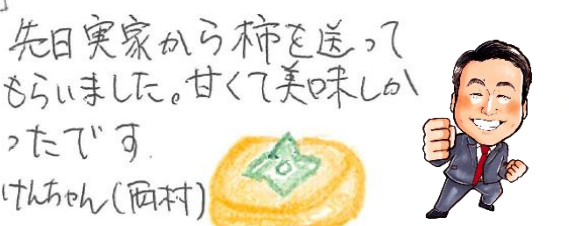 先日実家から柿を送って
もらいました。甘くて美味しか
ったです.
けんちゃん(西村)